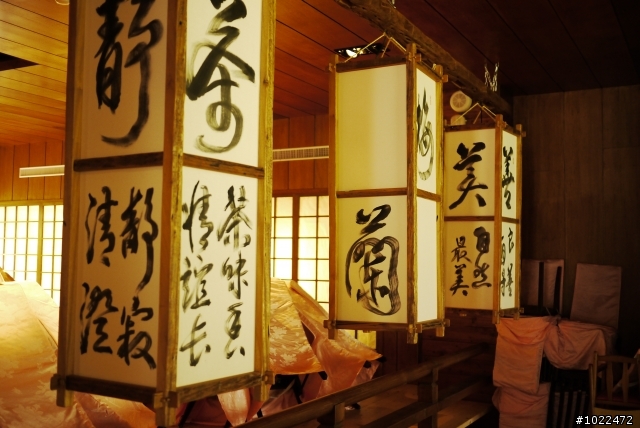 靜
靜寂
清澄
茶
茶味香
情誼長
蘭
梅
美
自然
最美
善
#1022472